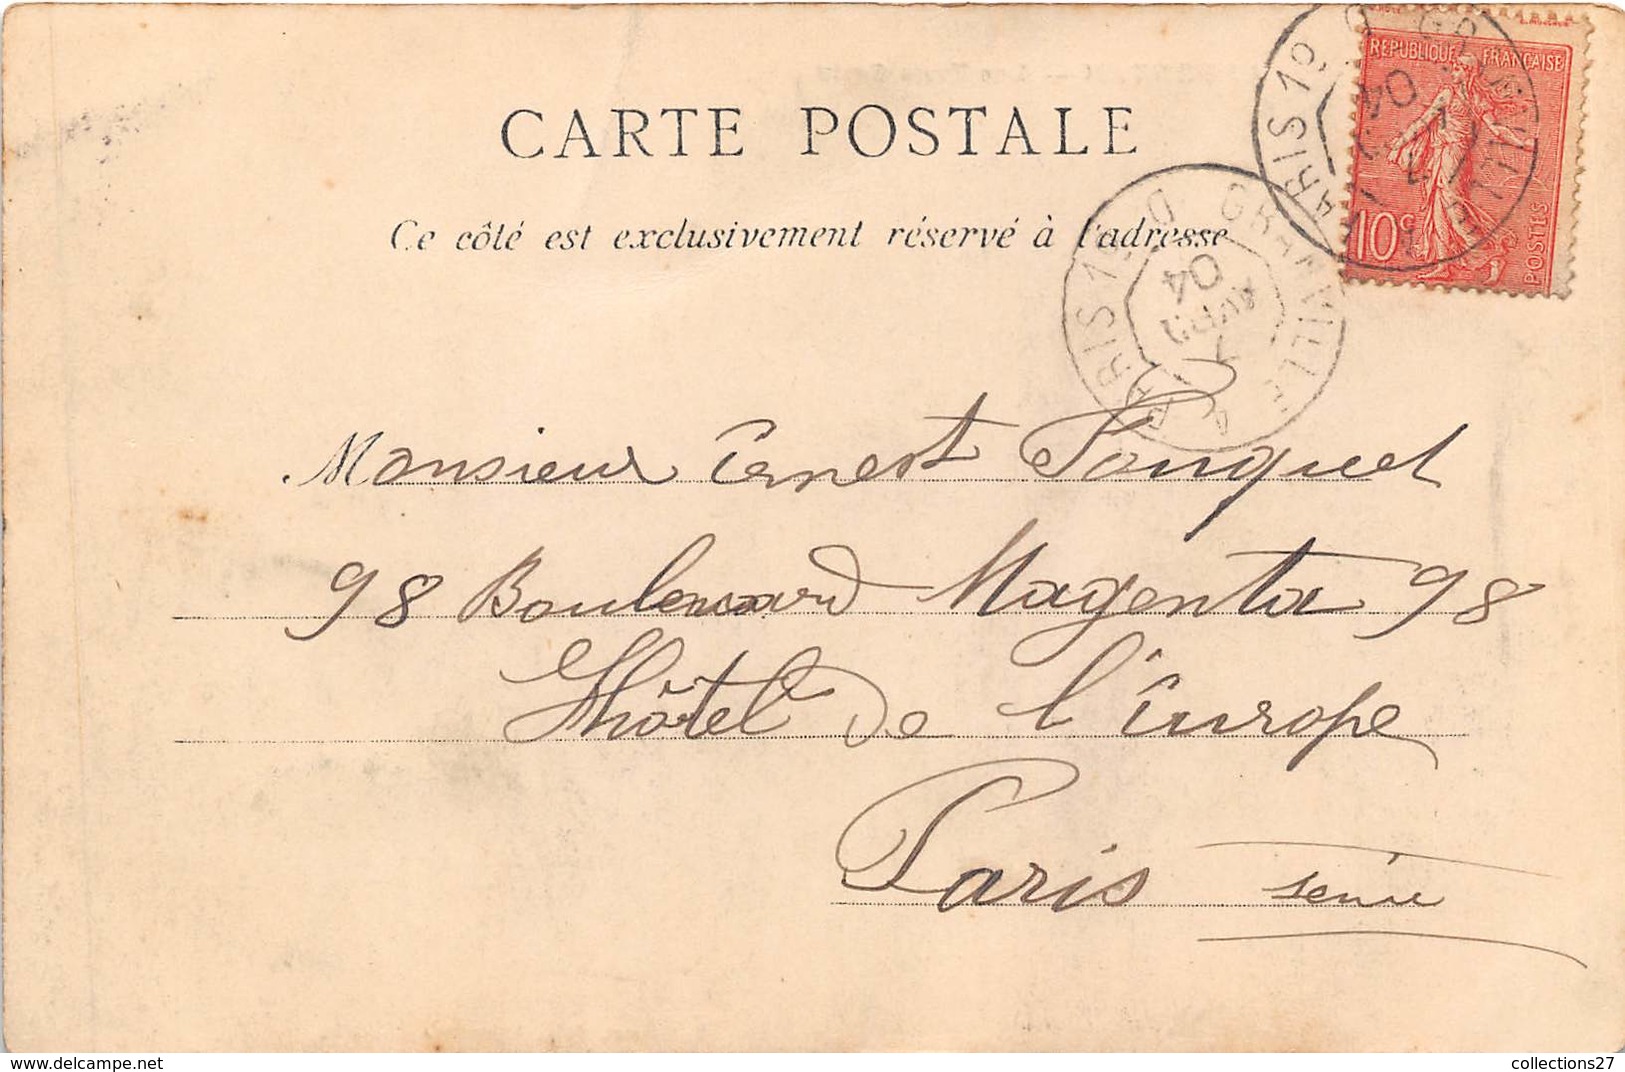 CARTE POSTALE
Ce côté est exclusivement réservé à l'adresse
REPUBLIQUE FRANÇAISE
10c
POSTES
GRANVILLE A PARIS 1º D
7
AVRIL
04
Monsieur Ernest Pouquet
98 Boulevard Magenta 98
Hôtel de l'Europe
Paris
delcampe.net
collections27